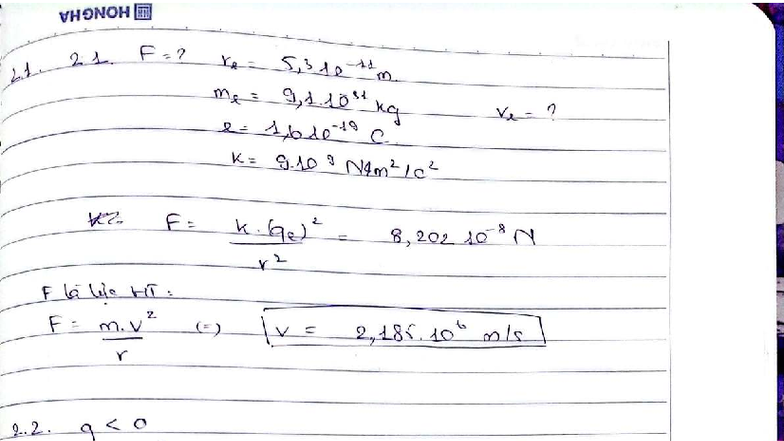 HONGHA
2.1. 2.1. F = ? re = 5,3 10⁻¹¹ m.
me = 9,1.10³¹ kg ve = ?
e = 1,6 10⁻¹⁹ C
K = 9.10⁹ N m²/C²
F = K.(qe)²/r² = 8,202 10⁻⁸ N
F là lực HT:
F = m.v²/r (=) v = 2,185.10⁶ m/s
2.2. q < 0